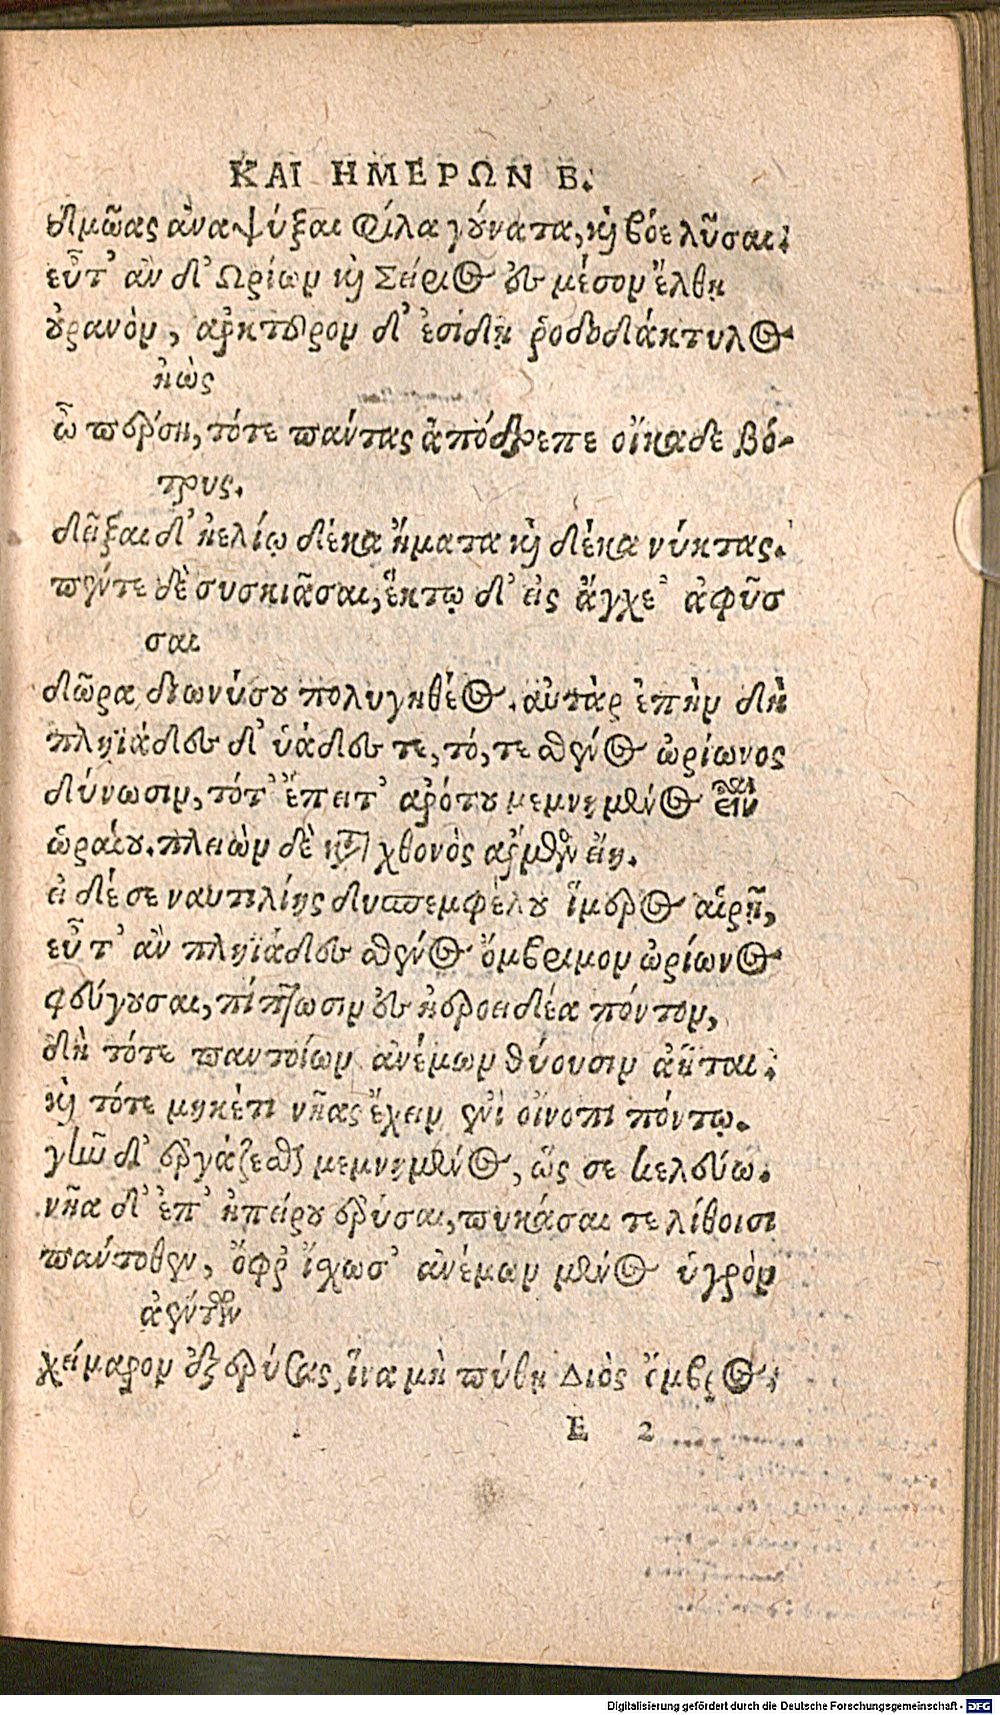 ΚΑΙ ΗΜΕΡΩΝ Β.
δμῶας ἀναψύξαι φίλα γούνατα, καὶ βόε λῦσαι.
εὖτ' ἂν δ' Ωρίων καὶ Σείριος ἐς μέσον ἔλθῃ
οὐρανὸν, ἀρκτοῦρον δ' ἐσίδῃ ῥοδοδάκτυλος
ἠὼς
ὦ πέρση, τότε πάντας ἀπόδρεπε οἴκαδε βό-
τρυς.
δεῖξαι δ' ἠελίῳ δέκα ἤματα καὶ δέκα νύκτας.
πέντε δὲ συσκιᾶσαι, ἕκτῳ δ' εἰς ἄγγε' ἀφῦσ
σαι
δῶρα διωνύσου πολυγηθέος. αὐτὰρ ἐπὴν δὴ
πληϊάδες δ' ὑάδες τε, τό, τε σθένος ὠρίωνος
δύνωσιν, τότ' ἔπειτ' ἀρότου μεμνημένος εἶναι
ὡραίου. πλειὼν δὲ κατὰ χθονὸς ἄρμενος εἴη.
εἰ δέ σε ναυτιλίης δυσπεμφέλου ἵμερος αἱρῇ,
εὖτ' ἂν πληϊάδες σθένος ὄμβριμον ὠρίωνος
φεύγουσαι, πίπτωσιν ἐς ἠεροειδέα πόντον,
δὴ τότε παντοίων ἀνέμων θύουσιν ἀῆται.
καὶ τότε μηκέτι νῆας ἔχειν ἐνὶ οἴνοπι πόντῳ.
γῆν δ' ἐργάζεσθαι μεμνημένος, ὥς σε κελεύω.
νῆα δ' ἐπ' ἠπείρου ἐρύσαι, πυκάσαι τε λίθοισι
πάντοθεν, ὄφρ' ἴχωσ' ἀνέμων μένος ὑγρὸν
ἀέντων
χείμαρον ἐξερύσας, ἵνα μὴ πύθῃ Διὸς ὄμβρος.
E 2
Digitalisierung gefördert durch die Deutsche Forschungsgemeinschaft - DFG